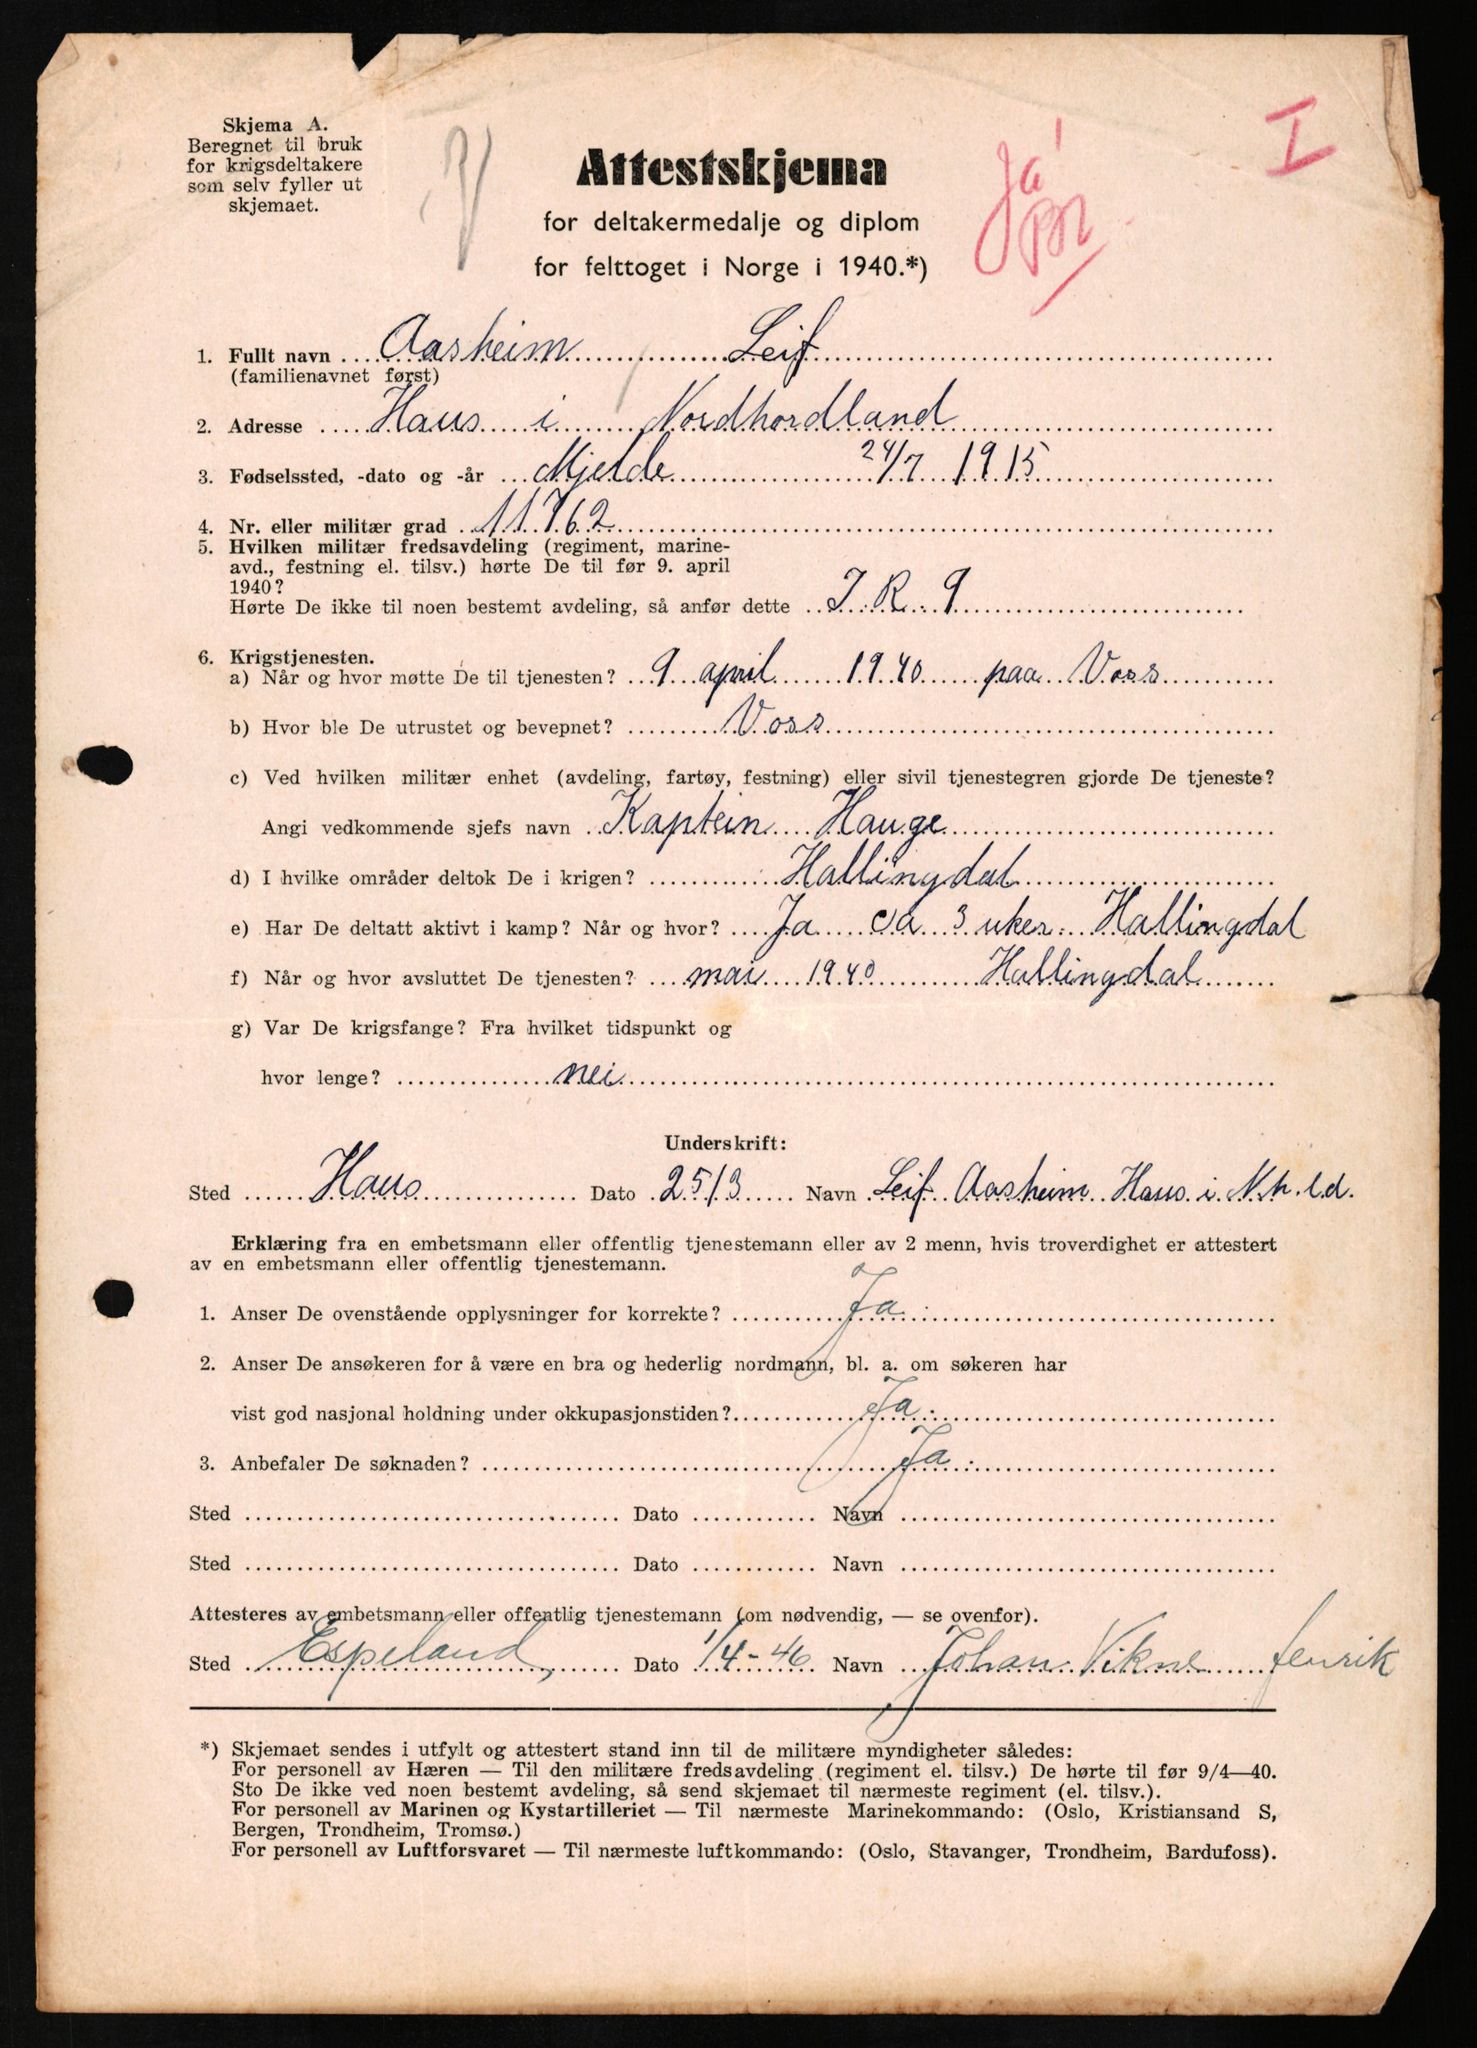 Skjema A.
Beregnet til bruk
for krigsdeltakere
som selv fyller ut
skjemaet.
Attestskjema
for deltakermedalje og diplom
for felttoget i Norge i 1940.*)
Ja
I
1. Fullt navn Aasheim Leif
(familienavnet først)
2. Adresse Haus i Nordhordland
3. Fødselssted, -dato og -år Mjelde 24/7 1915
4. Nr. eller militær grad 11762
5. Hvilken militær fredsavdeling (regiment, marine-
avd., festning el. tilsv.) hørte De til før 9. april
1940?
Hørte De ikke til noen bestemt avdeling, så anfør dette I.R. 9
6. Krigstjenesten.
a) Når og hvor møtte De til tjenesten? 9 april 1940 paa Voss
b) Hvor ble De utrustet og bevepnet? Voss
c) Ved hvilken militær enhet (avdeling, fartøy, festning) eller sivil tjenestegren gjorde De tjeneste?
Angi vedkommende sjefs navn Kaptein Hauge
d) I hvilke områder deltok De i krigen? Hallingdal
e) Har De deltatt aktivt i kamp? Når og hvor? Ja ca 3 uker Hallingdal
f) Når og hvor avsluttet De tjenesten? mai 1940 Hallingdal
g) Var De krigsfange? Fra hvilket tidspunkt og
hvor lenge? nei
Underskrift:
Sted Haus Dato 25/3 Navn Leif Aasheim Haus i N.h.l.d.
Erklæring fra en embetsmann eller offentlig tjenestemann eller av 2 menn, hvis troverdighet er attestert
av en embetsmann eller offentlig tjenestemann.
1. Anser De ovenstående opplysninger for korrekte? Ja.
2. Anser De ansøkeren for å være en bra og hederlig nordmann, bl. a. om søkeren har
vist god nasjonal holdning under okkupasjonstiden? Ja.
3. Anbefaler De søknaden? Ja.
Sted Dato Navn
Sted Dato Navn
Attesteres av embetsmann eller offentlig tjenestemann (om nødvendig, — se ovenfor).
Sted Espeland, Dato 1/4-46 Navn Johan Vikne
*) Skjemaet sendes i utfylt og attestert stand inn til de militære myndigheter således:
For personell av Hæren — Til den militære fredsavdeling (regiment el. tilsv.) De hørte til før 9/4—40.
Sto De ikke ved noen bestemt avdeling, så send skjemaet til nærmeste regiment (el. tilsv.).
For personell av Marinen og Kystartilleriet — Til nærmeste Marinekommando: (Oslo, Kristiansand S,
Bergen, Trondheim, Tromsø.)
For personell av Luftforsvaret — Til nærmeste luftkommando: (Oslo, Stavanger, Trondheim, Bardufoss).